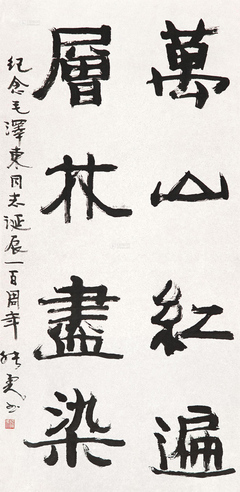 萬山紅遍
層林盡染
紀念毛澤東同志誕辰一百周年